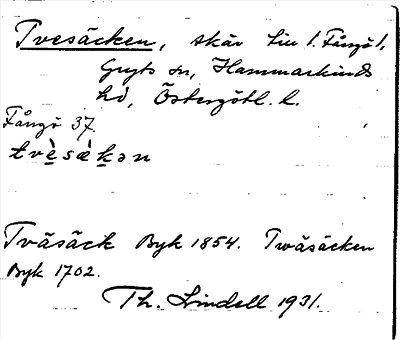 Tvesäcken, skär till l. Fångö l.
Gryts sn, Hammarkinds
hd, Östergötl. l.
Fångö 37.
tvèsæ̀kən
Tväsäck Byk 1854. Twäsäcken
Byk 1702.
Th. Lindell 1931.